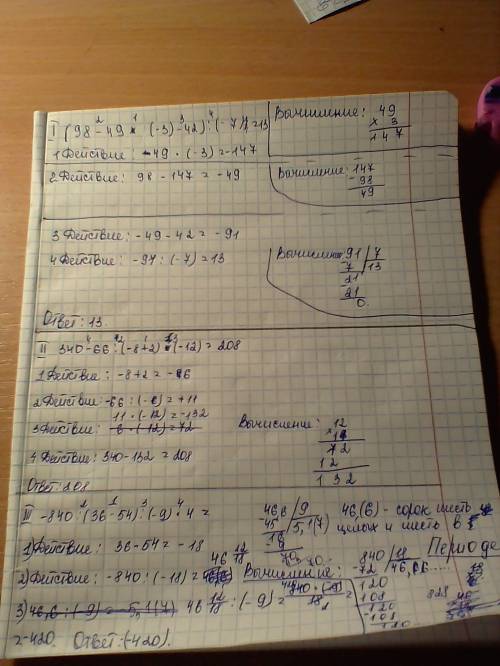 I (98 - 49 · (-3) - 42) : (-7) = 13
Вычисление: 49
× 3
147
1 Действие: -49 · (-3) = -147
2. Действие: 98 - 147 = -49
Вычисление: 147
- 98
49
3 Действие: -49 - 42 = -91
4 Действие: -91 : (-7) = 13
Вычисление 91 / 7
7 13
21
21
0
Ответ: 13.
II 340 - 66 : (-8+2) · (-12) = 208
1 Действие: -8+2 = -6
2 Действие: -66 : (-6) = +11
11 · (-12) = -132
3 Действие: 6 · (-12) = 72
Вычисление: 12
× 11
12
132
4 Действие: 340 - 132 = 208
Ответ: 208
III -840 : (36 - 54) : (-9) · 4 =
46,6 / 9
-45 5,1(7)
46,(6) - сорок шесть
целых и шесть в
Периоде
1) Действие: 36 - 54 = -18
2) Действие: -840 : (-18) = 46 12/18
Вычисление:
840 / 18
-72 46,66...
120
108
120
108
120
3) 46,6 : (-9) = -5,1(7) 46 12/18 : (-9) =
= -420. Ответ: (-420).